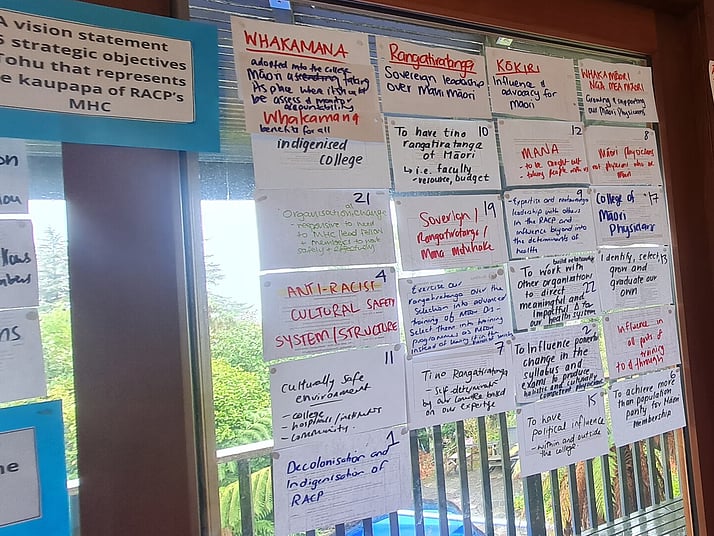 A vision statement
5 strategic objectives
Tohu that represents
e kaupapa of RACP's
MHC
WHAKAMANA
adopted into the college
be assess & monitor
accountability
Whakamana
benefits for all
indigenised
college
21
Organisation change
responsive to need
to MHC lead fellow
+ members to work
safely + effectively
4
ANTI-RACIST
CULTURAL SAFETY
SYSTEM/STRUCTURE
11
Culturally safe
environment
- college
- community
1
Decolonisation and
Indigenisation of
RACP
Rangatiratanga
Sovereign leadership
over Māori
10
To have tino
rangatiratanga
of Māori
↳ i.e. faculty
- resource, budget
19
Sovereign/
Rangatiratanga/
Mana motuhake
Exercise our
rangatiratanga over the
Selection into advanced
training of
Select them into training
programmes as
instead of
7
Tino Rangatiratanga
- self-determination
on our expertise
KŌKIRI
Influence &
advocacy for
Māori
12
MANA
- to be sought out
- taking people with us
9
Expertise and
leadership with others
in the RACP and
influence beyond into
the determinants of
health
build relationship
To work with
other organisations
to direct 22
meaningful and
impactful Δ to
our health system
2
To Influence
change in the
syllabus and
exams to produce
holistic and culturally
competent physicians
15
To have
Political influence
- within and outside
the college
WHAKAMĀORI
NGĀ MEA KATOA
Growing & supporting
our Māori Physicians
8
Māori physicians
not physicians who are
Māori
17
College of
Māori
Physicians
13
Identify, select,
grow and
graduate our
own
Influence in
all parts of
training
to & through
6
To achieve more
than population
parity for Māori
Membership